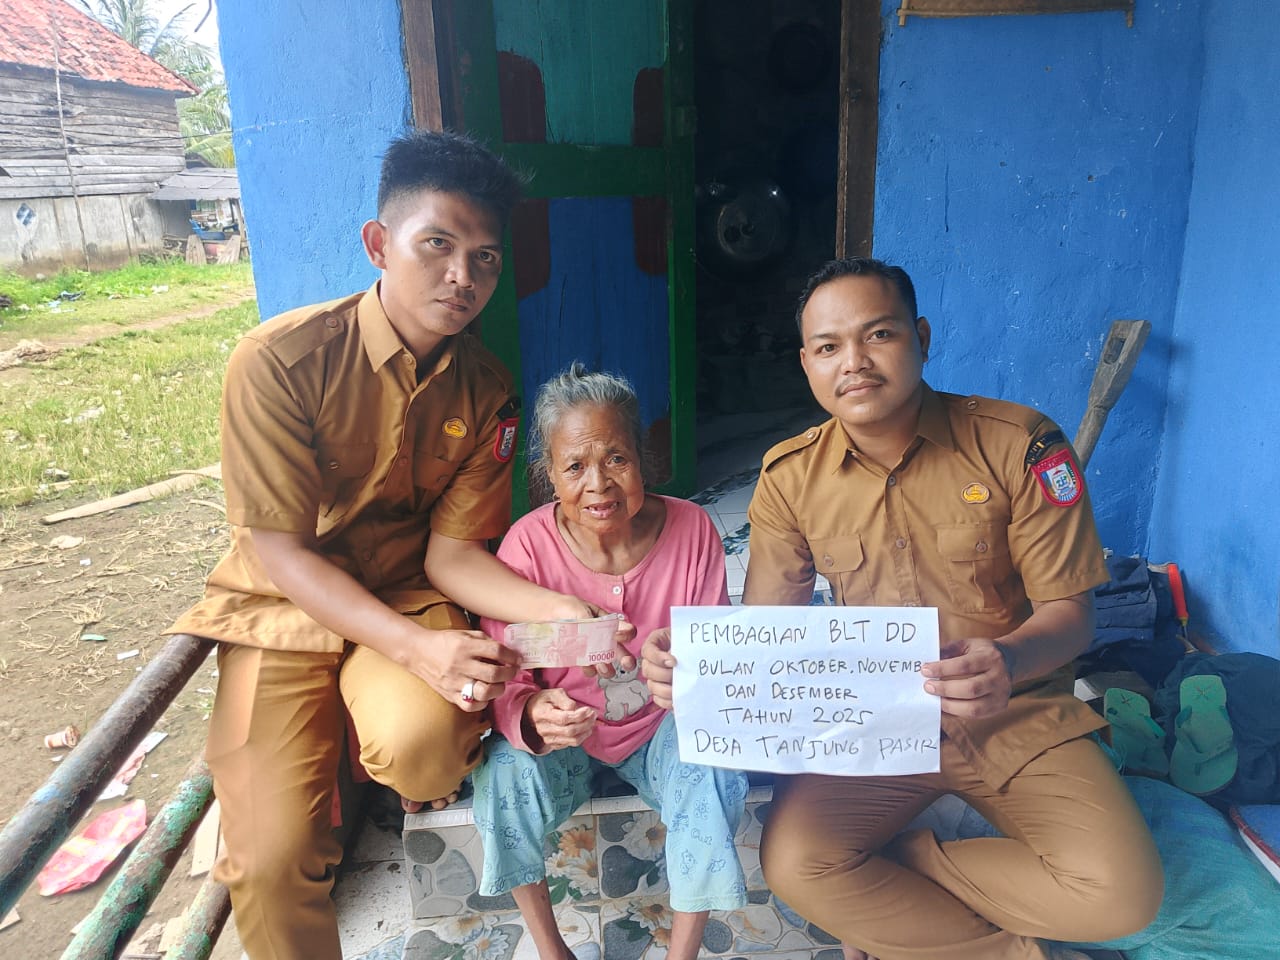 100000
PEMBAGIAN BLT DD
BULAN OKTOBER, NOVEMB
DAN DESEMBER
TAHUN 2025
DESA TANJUNG PASIR